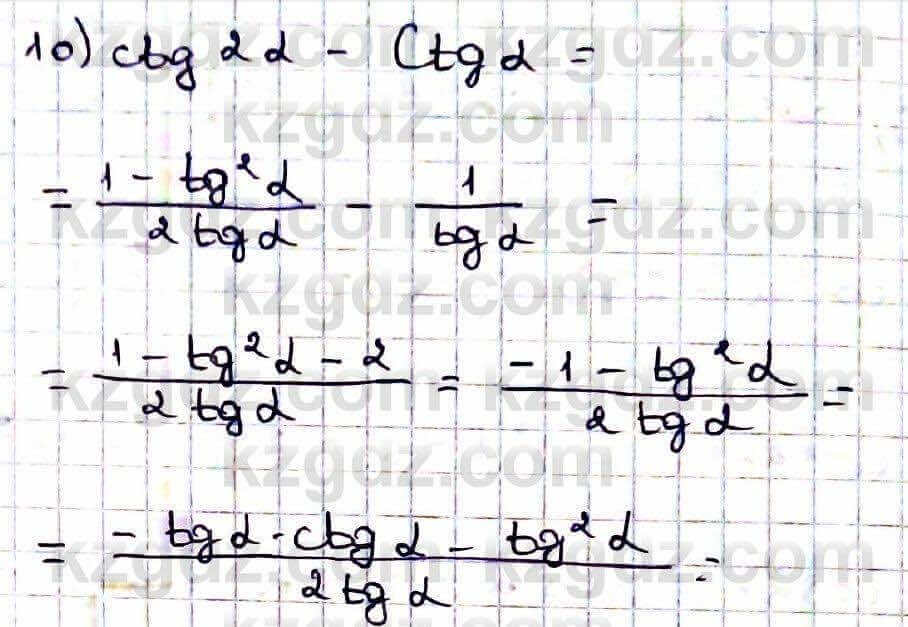 10) ctg 2α - Ctg α =
= (1 - tg²α)/(2 tg α) - 1/(tg α) =
= (1 - tg²α - 2)/(2 tg α) = (-1 - tg²α)/(2 tg α) =
= (- tg α · ctg α - tg²α)/(2 tg α) =
kzgdz.com